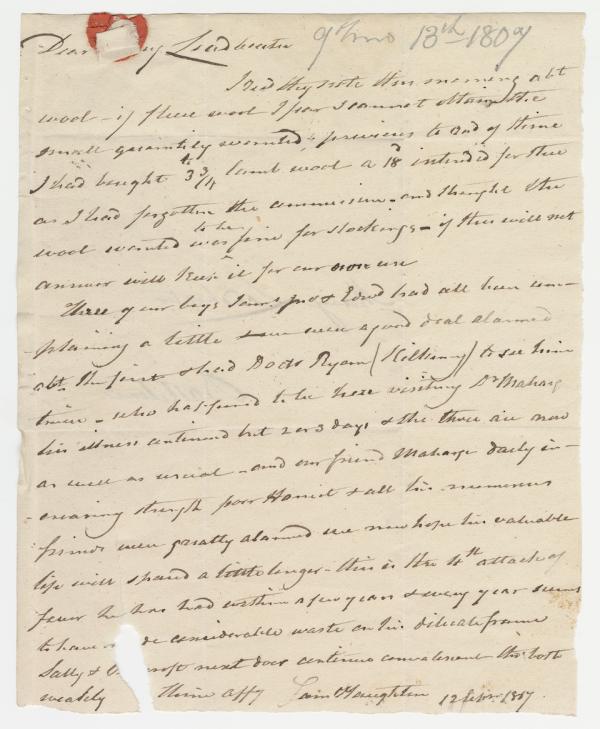 Dear Leadbeater 9th mo 13th 1807
I recd thy note this morning abt
wool - if fleece wool I fear I cannot obtain the
small quantity wanted & previous to rect of thine
I had bought 3 3/4 lamb wool a 18d intended for thee
as I had forgotten the commission - and thought the
wool wanted was to be fine for stockings - if this will not
answer will keep it for our own use
Three of our boys James Jno & Edwd had all been com-
-plaining a little & we were a good deal alarmed
abt the first & had Doctr Ryan (Kilkenny) to see him
twice - who happened to be here visiting Dr Maharg
his illness continued but 2 or 3 days & the three are now
as well as usual - and our friend Maharge daily in-
-creasing strength poor Harriet & all his numerous
friends were greatly alarmed we now hope his valuable
life will spared a little longer - this is the 4th attack of
fever he has had within a few years & every year seems
to have made considerable waste on his delicate frame
Sally & next door continue convalescent tho' both
weakly thine affy Jam 12 1807